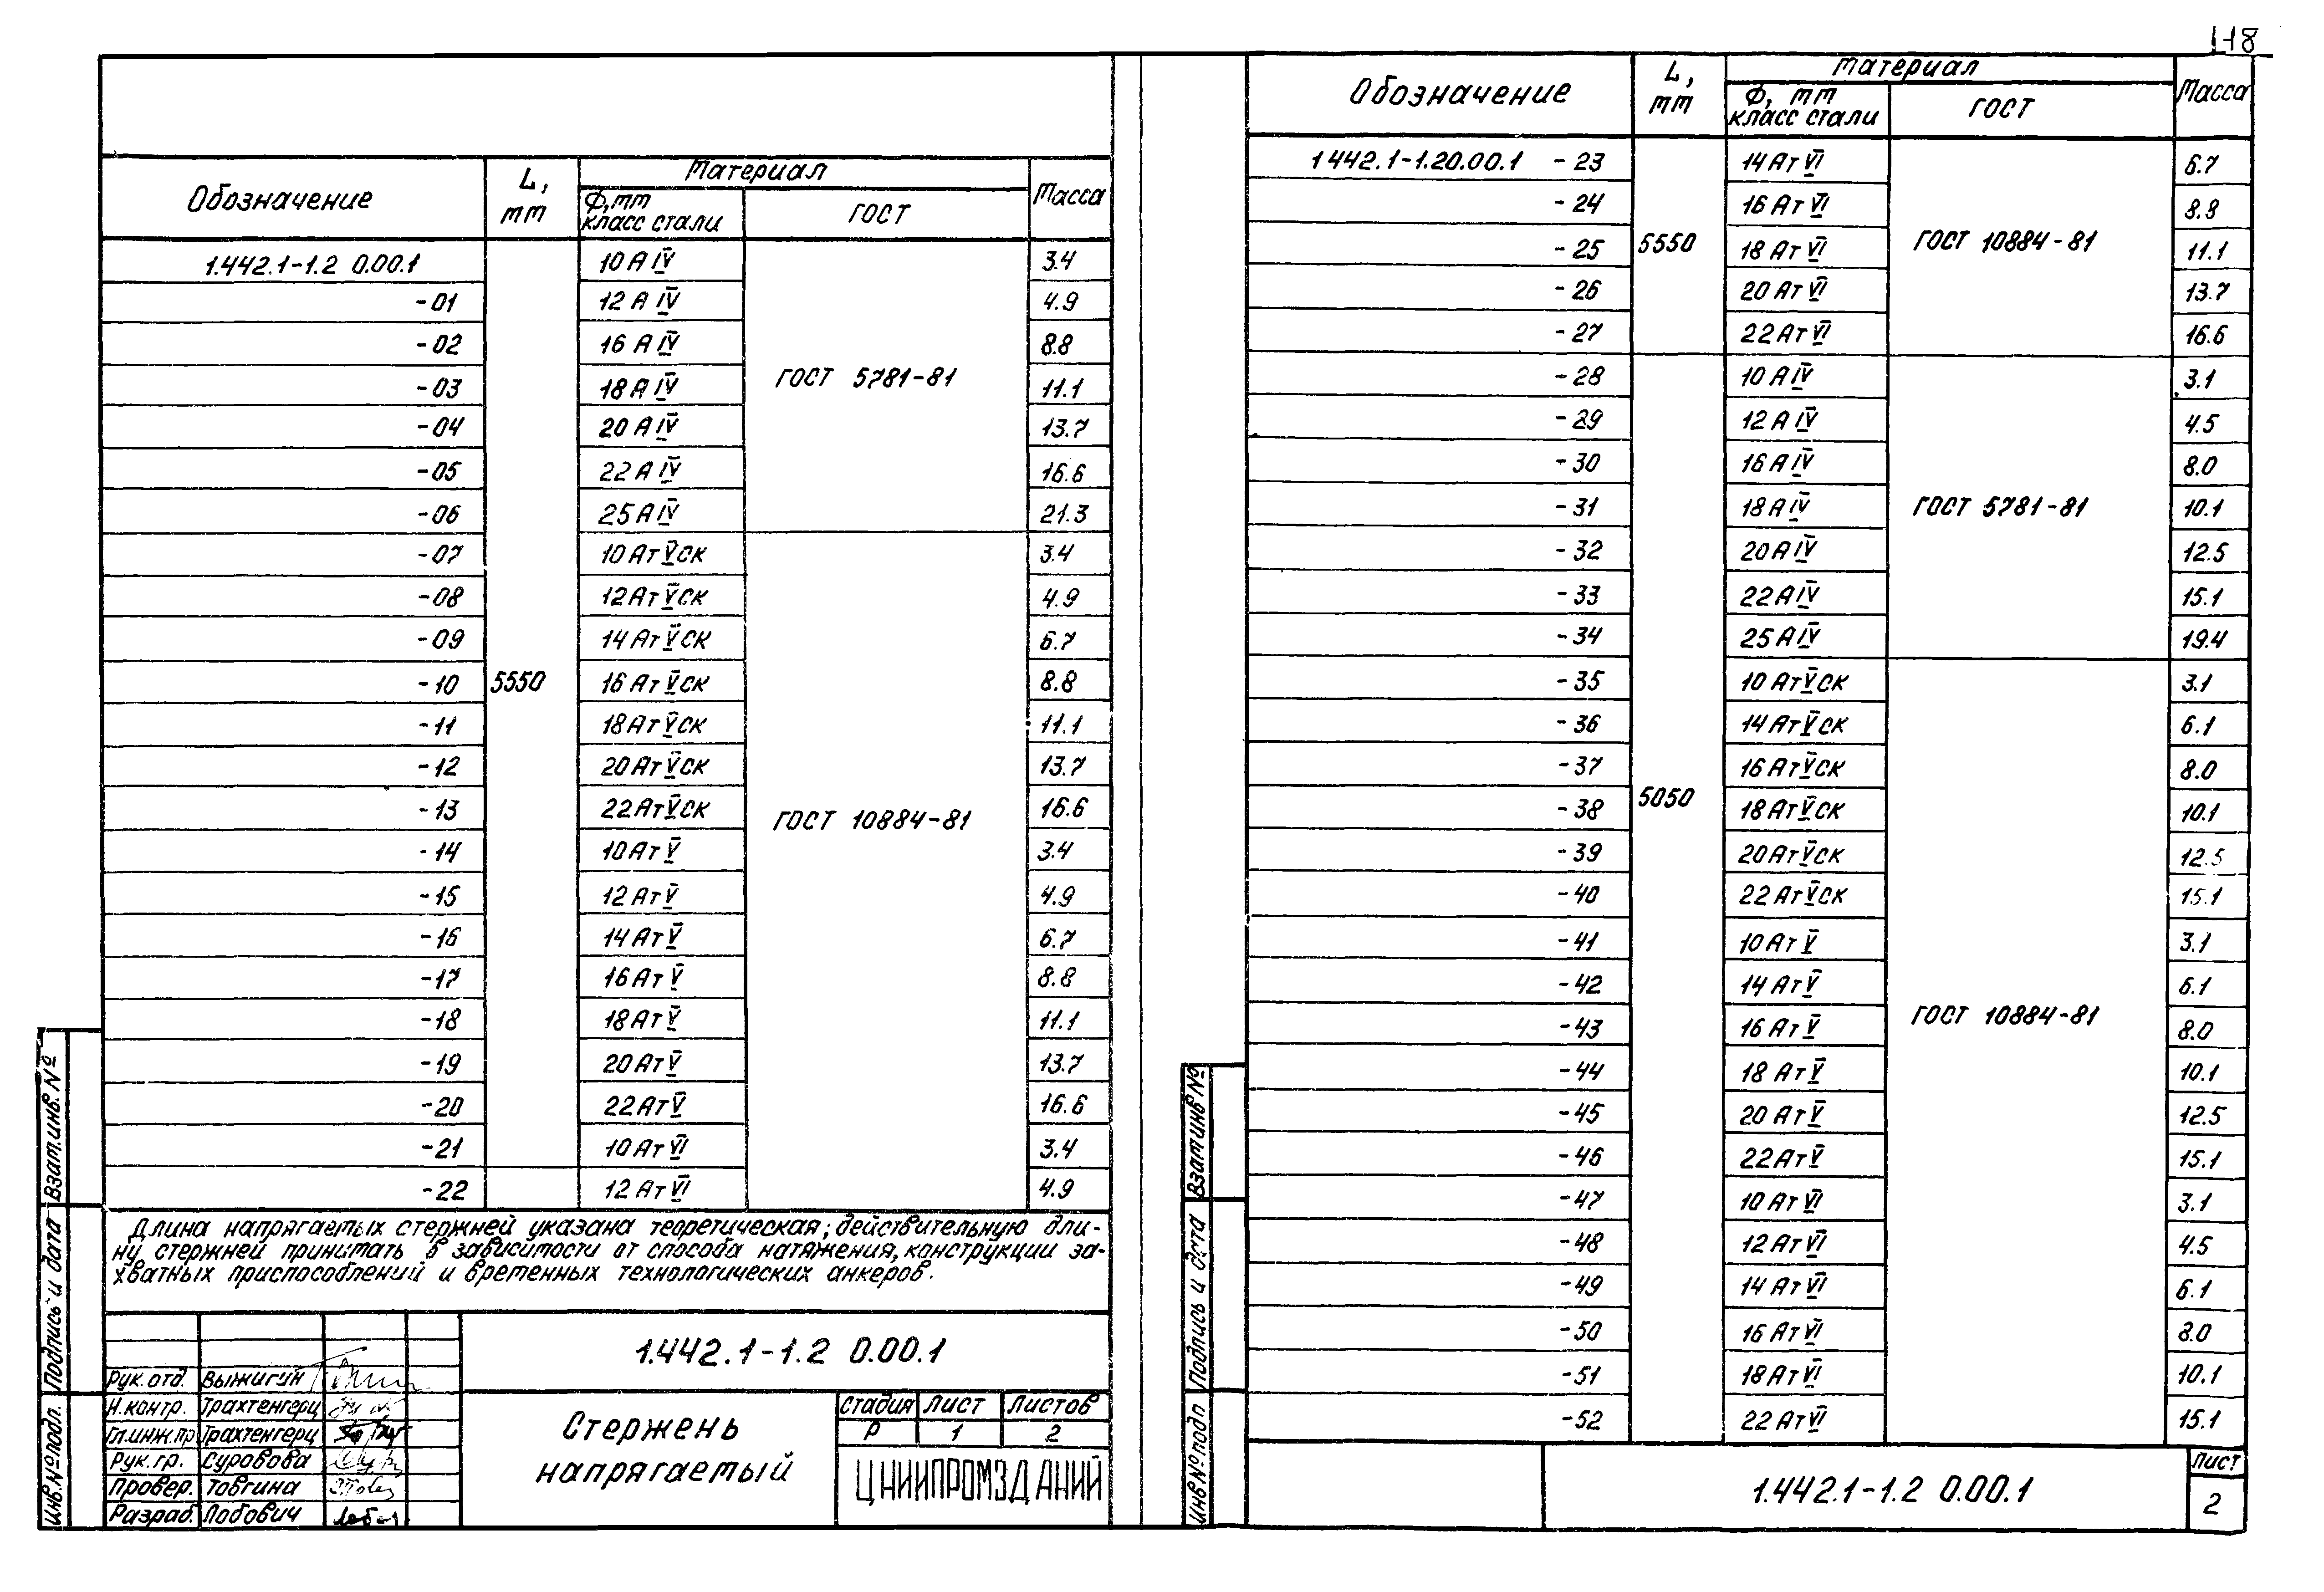 118
Обозначение L, мм Материал Масса
Ф, мм класс стали ГОСТ
1.442.1-1.2 0.00.1 10 А IV 3.4
-01 12 А IV 4.9
-02 16 А IV 8.8
-03 18 А IV ГОСТ 5781-81 11.1
-04 20 А IV 13.7
-05 22 А IV 16.6
-06 25 А IV 21.3
-07 10 Ат V СК 3.4
-08 12 Ат V СК 4.9
-09 14 Ат V СК 6.7
-10 5550 16 Ат V СК 8.8
-11 18 Ат V СК 11.1
-12 20 Ат V СК 13.7
-13 22 Ат V СК ГОСТ 10884-81 16.6
-14 10 Ат V 3.4
-15 12 Ат V 4.9
-16 14 Ат V 6.7
-17 16 Ат V 8.8
-18 18 Ат V 11.1
-19 20 Ат V 13.7
-20 22 Ат V 16.6
-21 10 Ат VI 3.4
-22 12 Ат VI 4.9
Длина напрягаемых стержней указана теоретическая; действительную дли-
ну стержней принимать в зависимости от способа натяжения, конструкции за-
хватных приспособлений и временных технологических анкеров.
1.442.1-1.2 0.00.1
Рук. отд. Выжигин
Н.контр. Трахтенгерц
Гл.инж.пр Трахтенгерц
Рук. гр. Суровова
Провер. Товгина
Разраб. Лобович
Стержень
напрягаемый
Стадия Лист Листов
Р 1 2
ЦНИИПРОМЗДАНИЙ
Взам.инв.№
Подпись и дата
Инв.№ подл.
Обозначение L, мм Материал Масса
Ф, мм класс стали ГОСТ
1442.1-1.20.00.1 -23 14 Ат VI 6.7
-24 16 Ат VI 8.8
-25 5550 18 Ат VI ГОСТ 10884-81 11.1
-26 20 Ат VI 13.7
-27 22 Ат VI 16.6
-28 10 А IV 3.1
-29 12 А IV 4.5
-30 16 А IV 8.0
-31 18 А IV ГОСТ 5781-81 10.1
-32 20 А IV 12.5
-33 22 А IV 15.1
-34 25 А IV 19.4
-35 10 Ат V СК 3.1
-36 14 Ат V СК 6.1
-37 16 Ат V СК 8.0
-38 5050 18 Ат V СК 10.1
-39 20 Ат V СК 12.5
-40 22 Ат V СК 15.1
-41 10 Ат V 3.1
-42 14 Ат V 6.1
-43 16 Ат V ГОСТ 10884-81 8.0
-44 18 Ат V 10.1
-45 20 Ат V 12.5
-46 22 Ат V 15.1
-47 10 Ат VI 3.1
-48 12 Ат VI 4.5
-49 14 Ат VI 6.1
-50 16 Ат VI 8.0
-51 18 Ат VI 10.1
-52 22 Ат VI 15.1
1.442.1-1.2 0.00.1
Лист
2
Взам инв №
Подпись и дата
Инв № подл